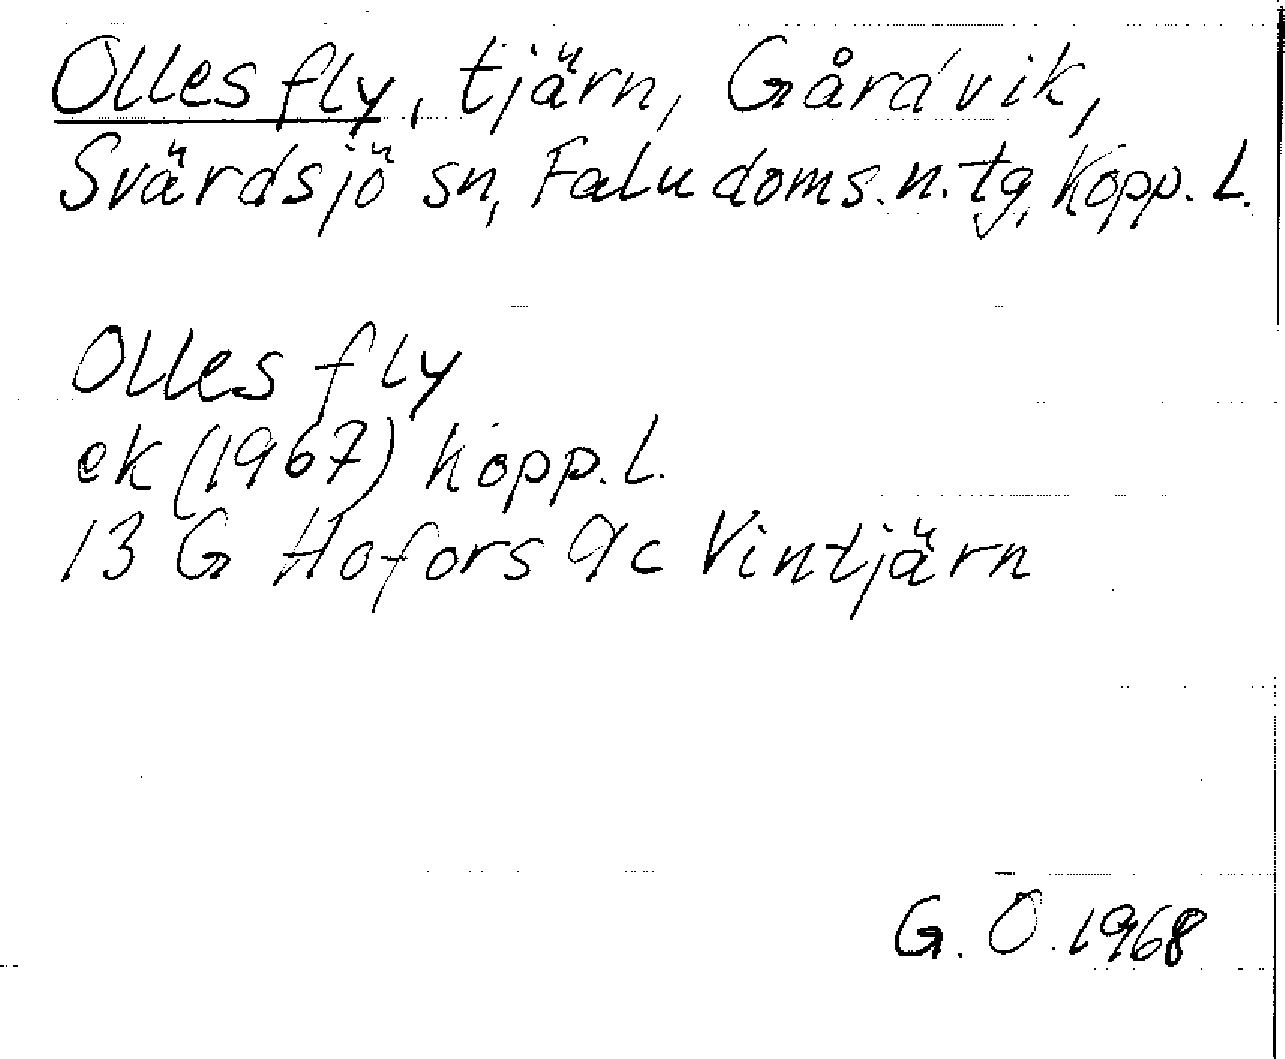 Olles fly, tjärn, Gårdvik,
Svärdsjö sn, Falu doms.n.tg, Kopp. L.
Olles fly
ek (1967) Kopp. L.
13 G Hofors 9c Vintjärn
G. O. 1968